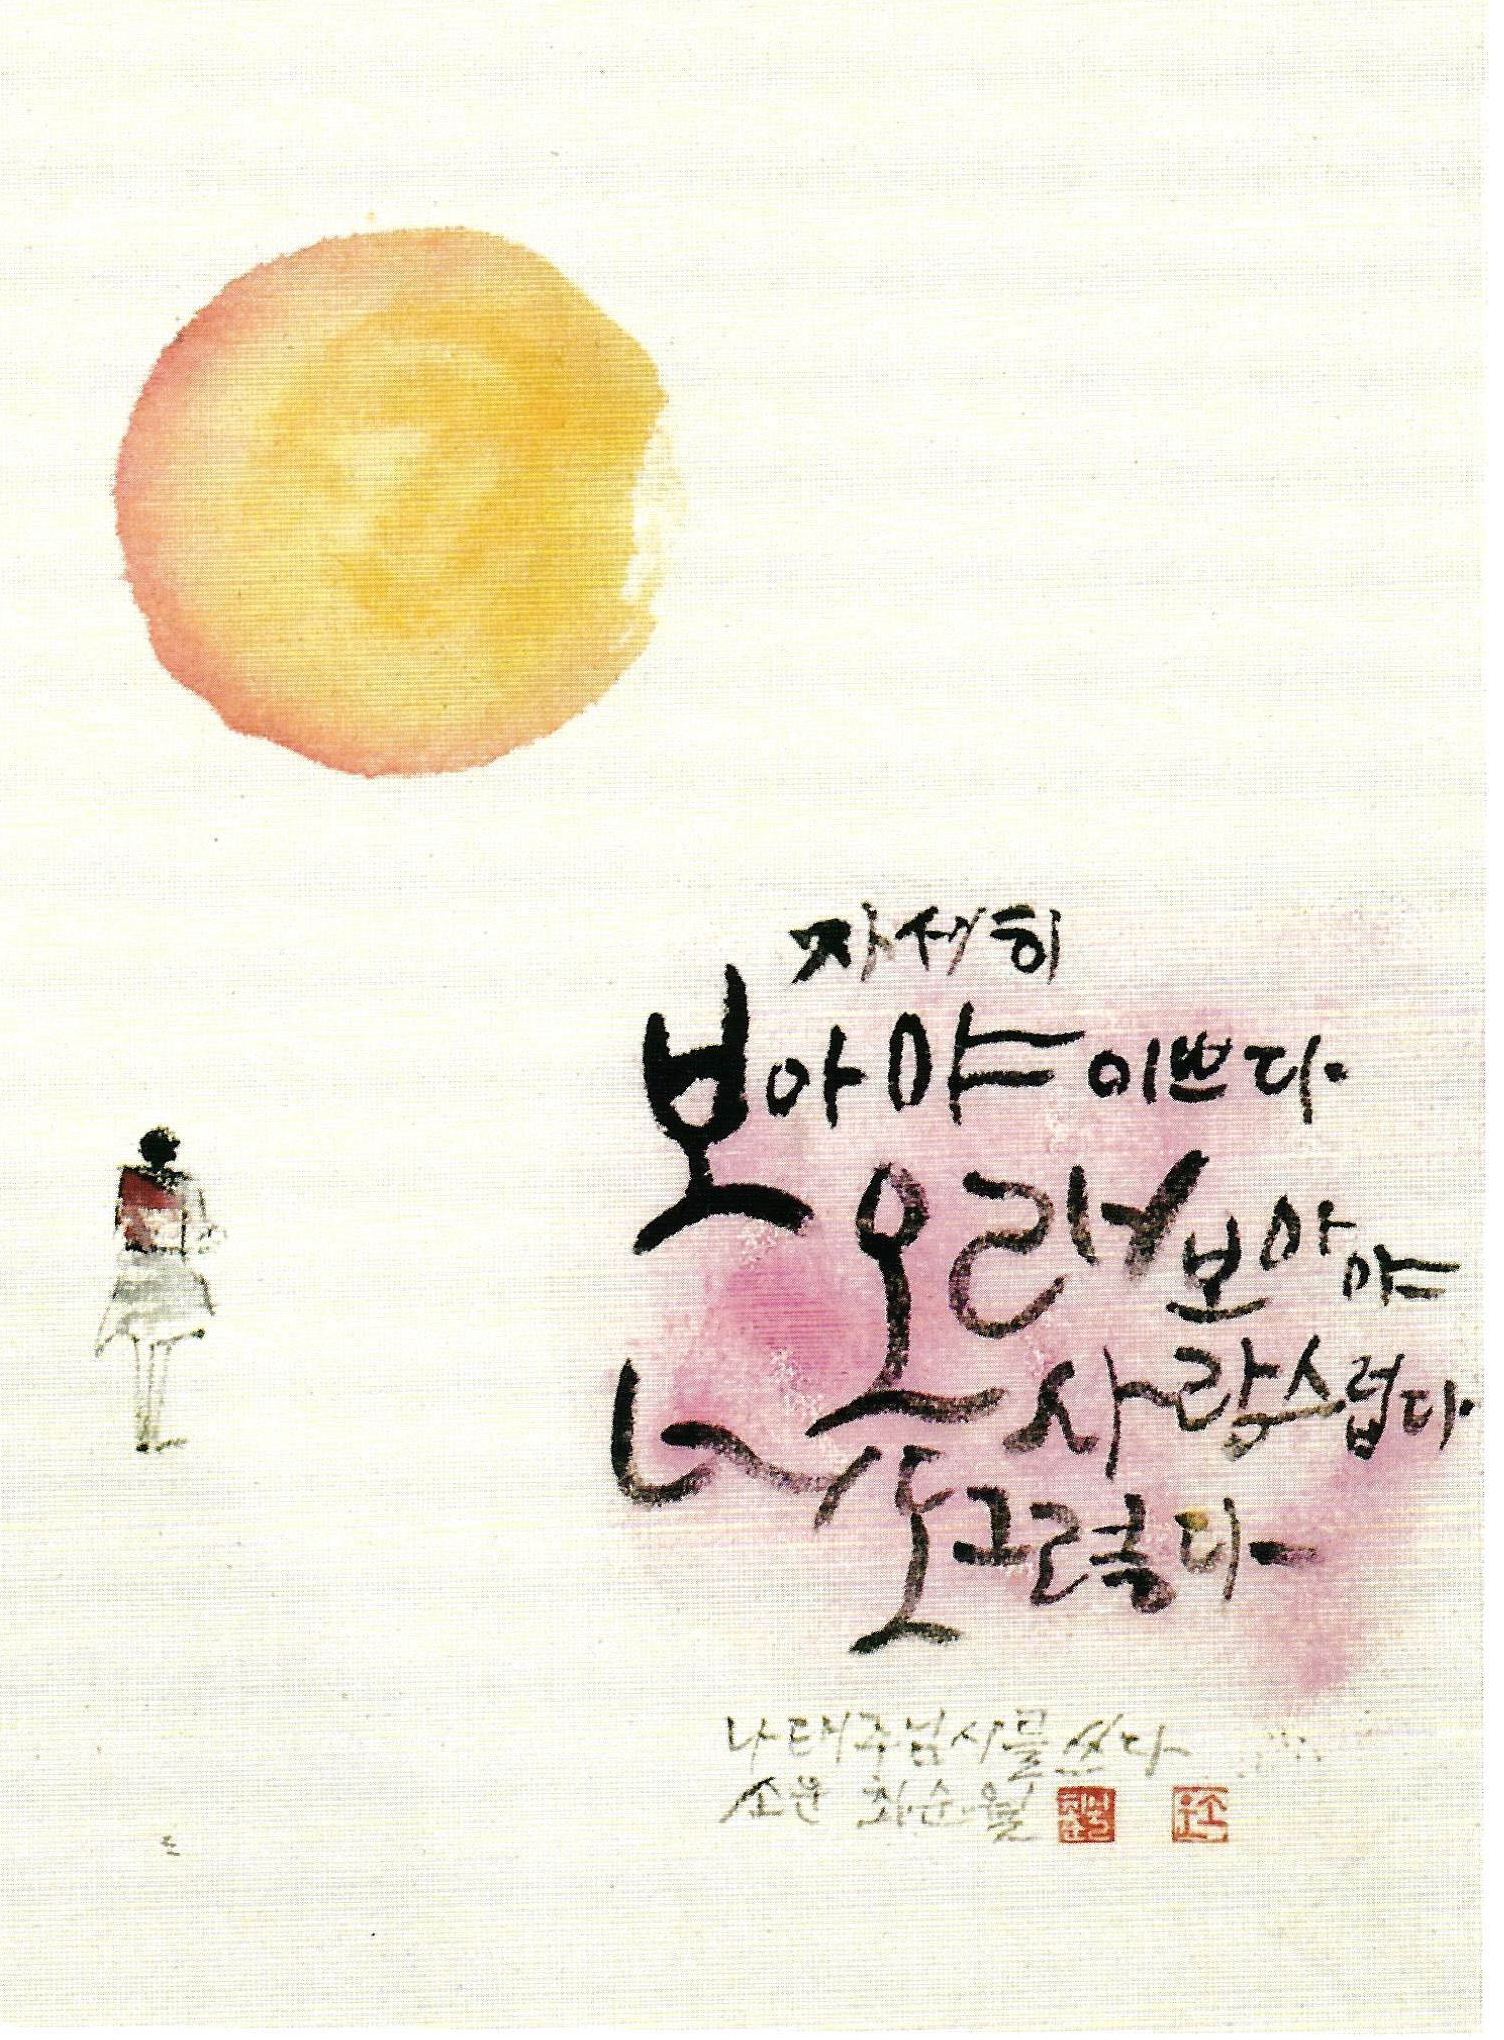 자세히
보아야 이쁘다.
오래 보아야
사랑스럽다.
너도 그렇다-
나태주님 시를 쓰다
소운 최순월